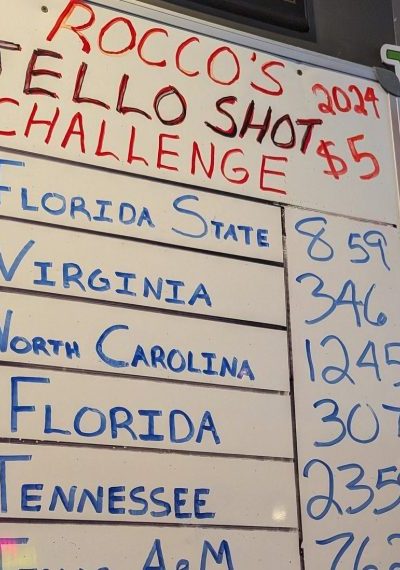 ROCCO'S 2024
JELLO SHOT
CHALLENGE $5
FLORIDA STATE 859
VIRGINIA 346
NORTH CAROLINA 1245
FLORIDA 307
TENNESSEE 235
A&M